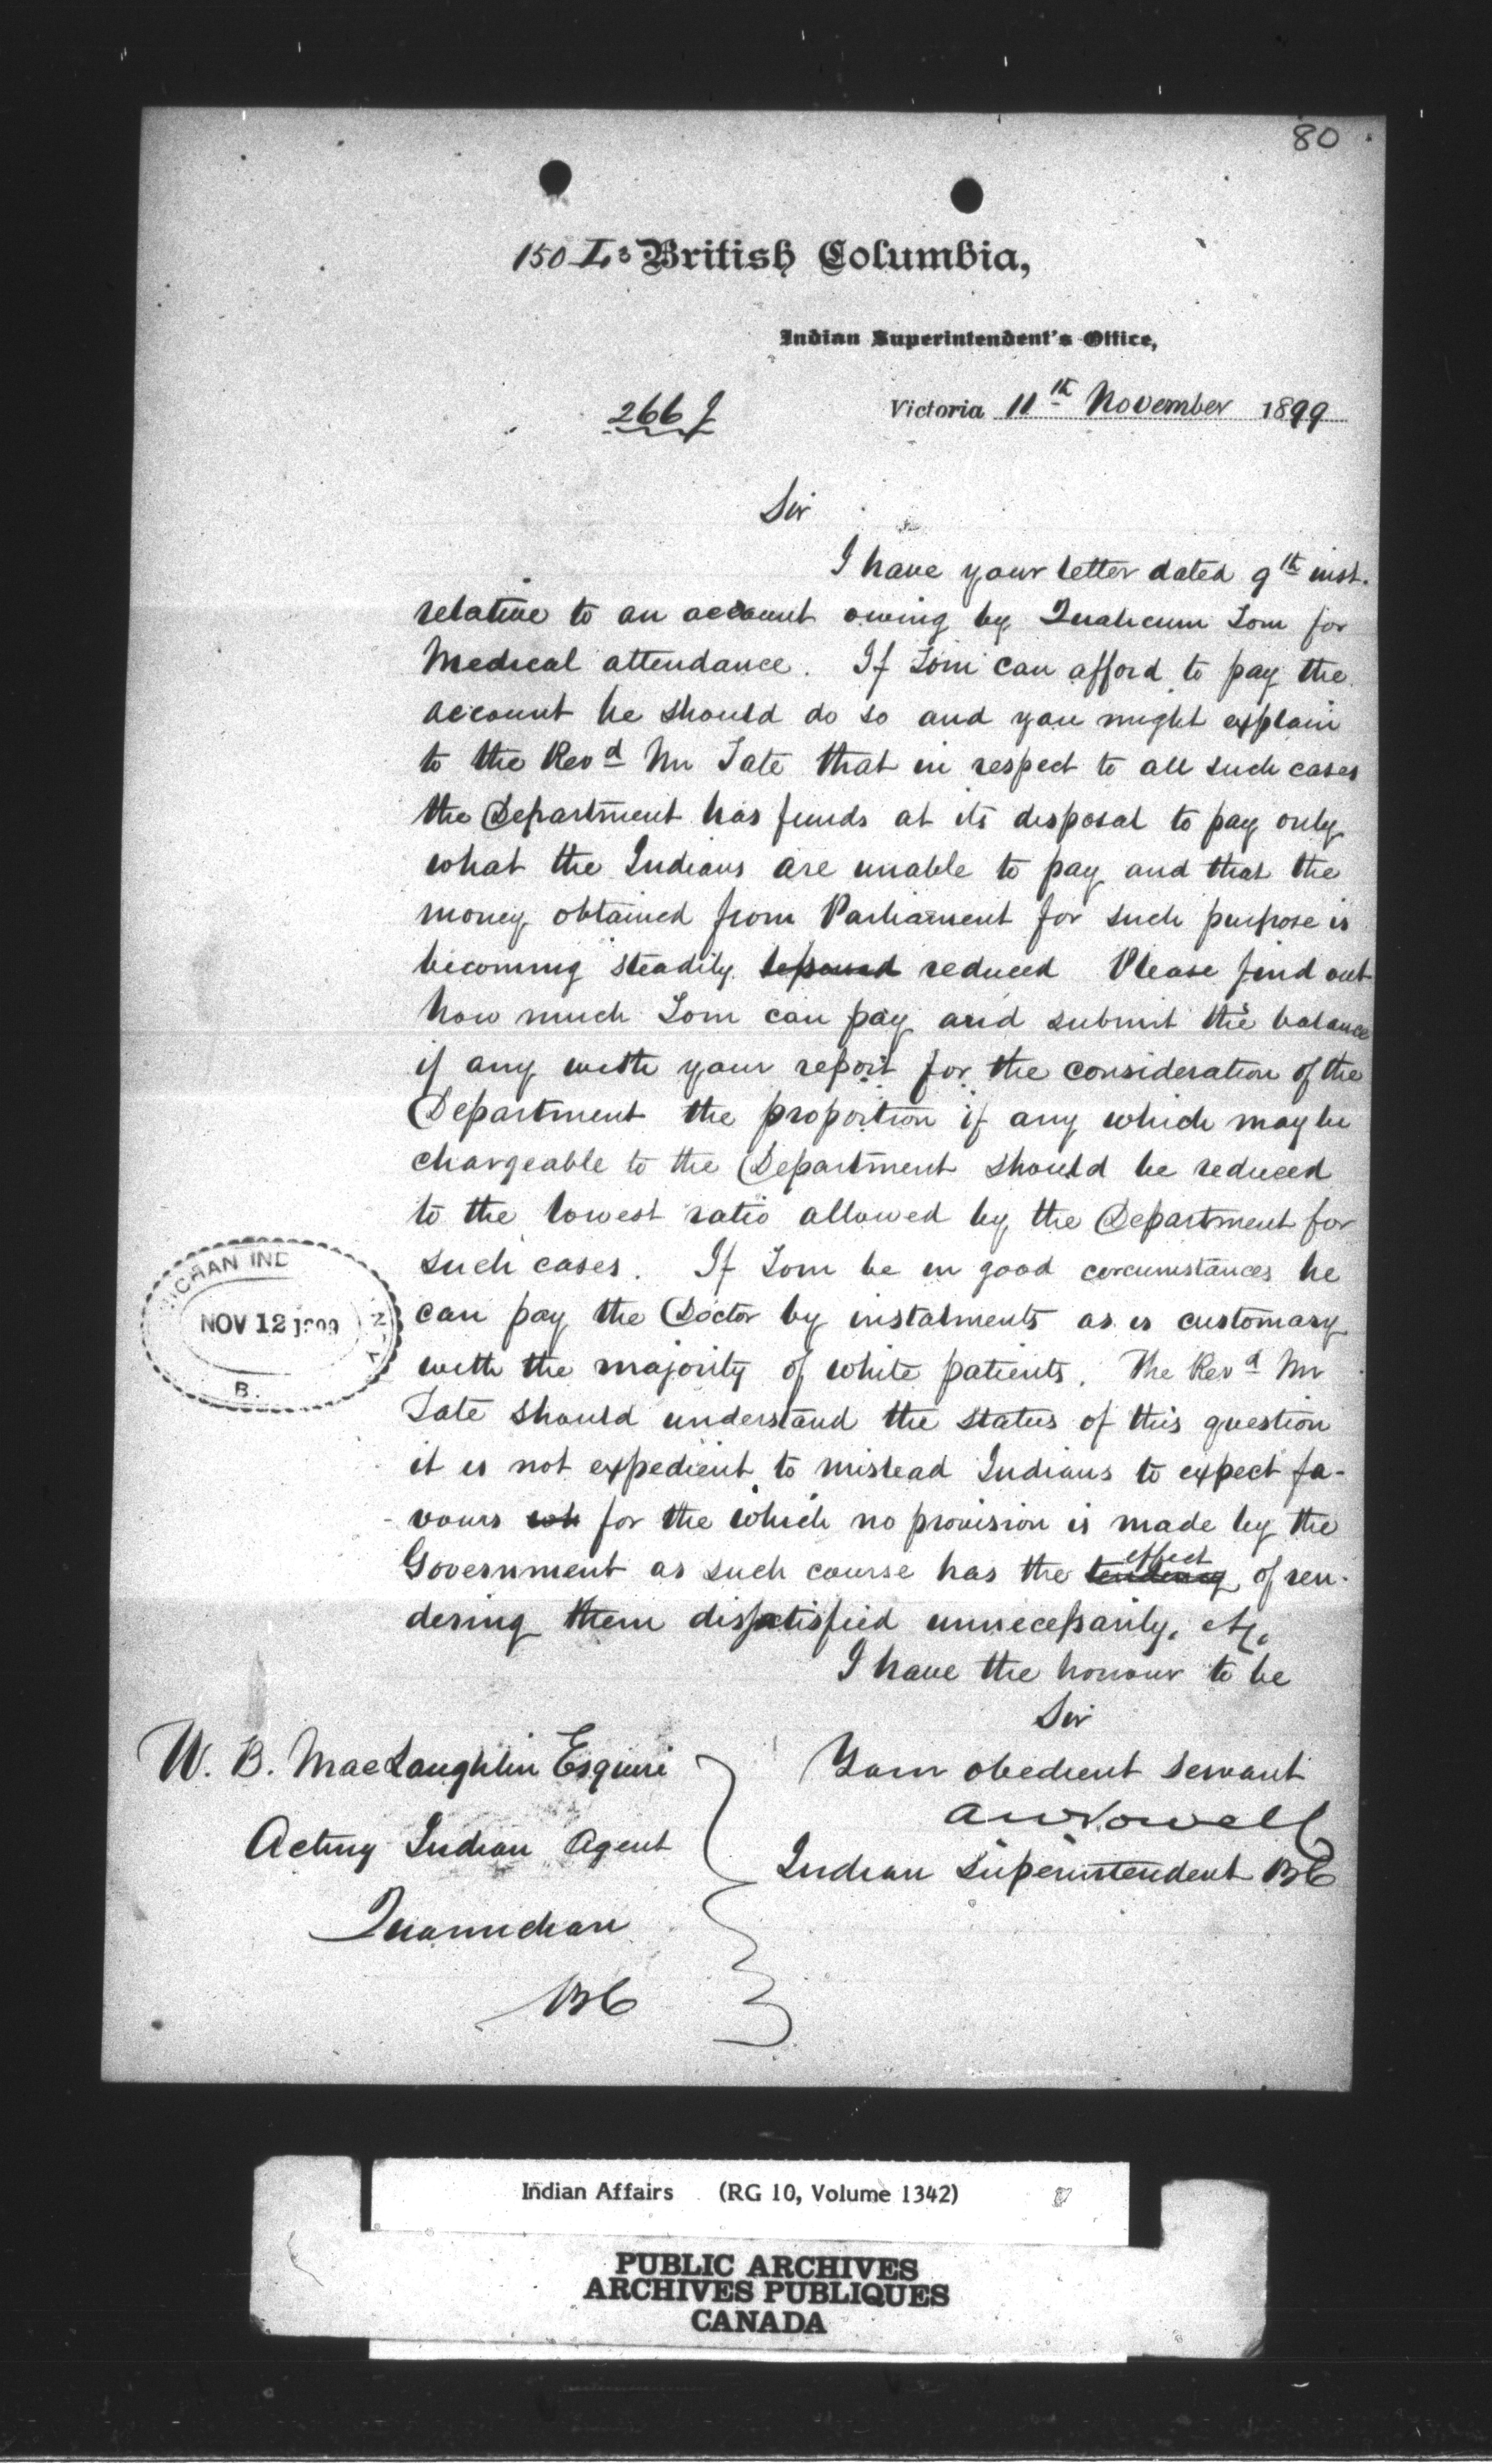 80
150 L3 British Columbia,
Indian Superintendent's Office,
266 J
Victoria 11th November 1899
Sir
I have your letter dated 9th inst.
relative to an account owing by Qualicum Tom for
Medical attendance. If Tom can afford to pay the
account he should do so and you might explain
to the Revd Mr Tate that in respect to all such cases
the Department has funds at its disposal to pay only
what the Indians are unable to pay and that the
money obtained from Parliament for such purpose is
becoming steadily reduced Please find out
how much Tom can pay and submit the balance
if any with your report for the consideration of the
Department the proportion if any which may be
chargeable to the Department should be reduced
to the lowest ratio allowed by the Department for
such cases. If Tom be in good circumstances he
can pay the Doctor by instalments as is customary
with the majority of white patients. The Revd Mr
Tate should understand the status of this question
it is not expedient to mislead Indians to expect fa-
-vours wh for the which no provision is made by the
Government as such course has the tendency effect of ren-
dering them dissatisfied unnecessarily, etc.
I have the honour to be
Sir
Your obedient servant
A W Vowell
Indian Superintendent BC
W. B. MacLaughlin Esquire
Acting Indian Agent
Quamichan
BC
ICHAN IND
NOV 12 1899
B.
Indian Affairs (RG 10, Volume 1342)
PUBLIC ARCHIVES
ARCHIVES PUBLIQUES
CANADA